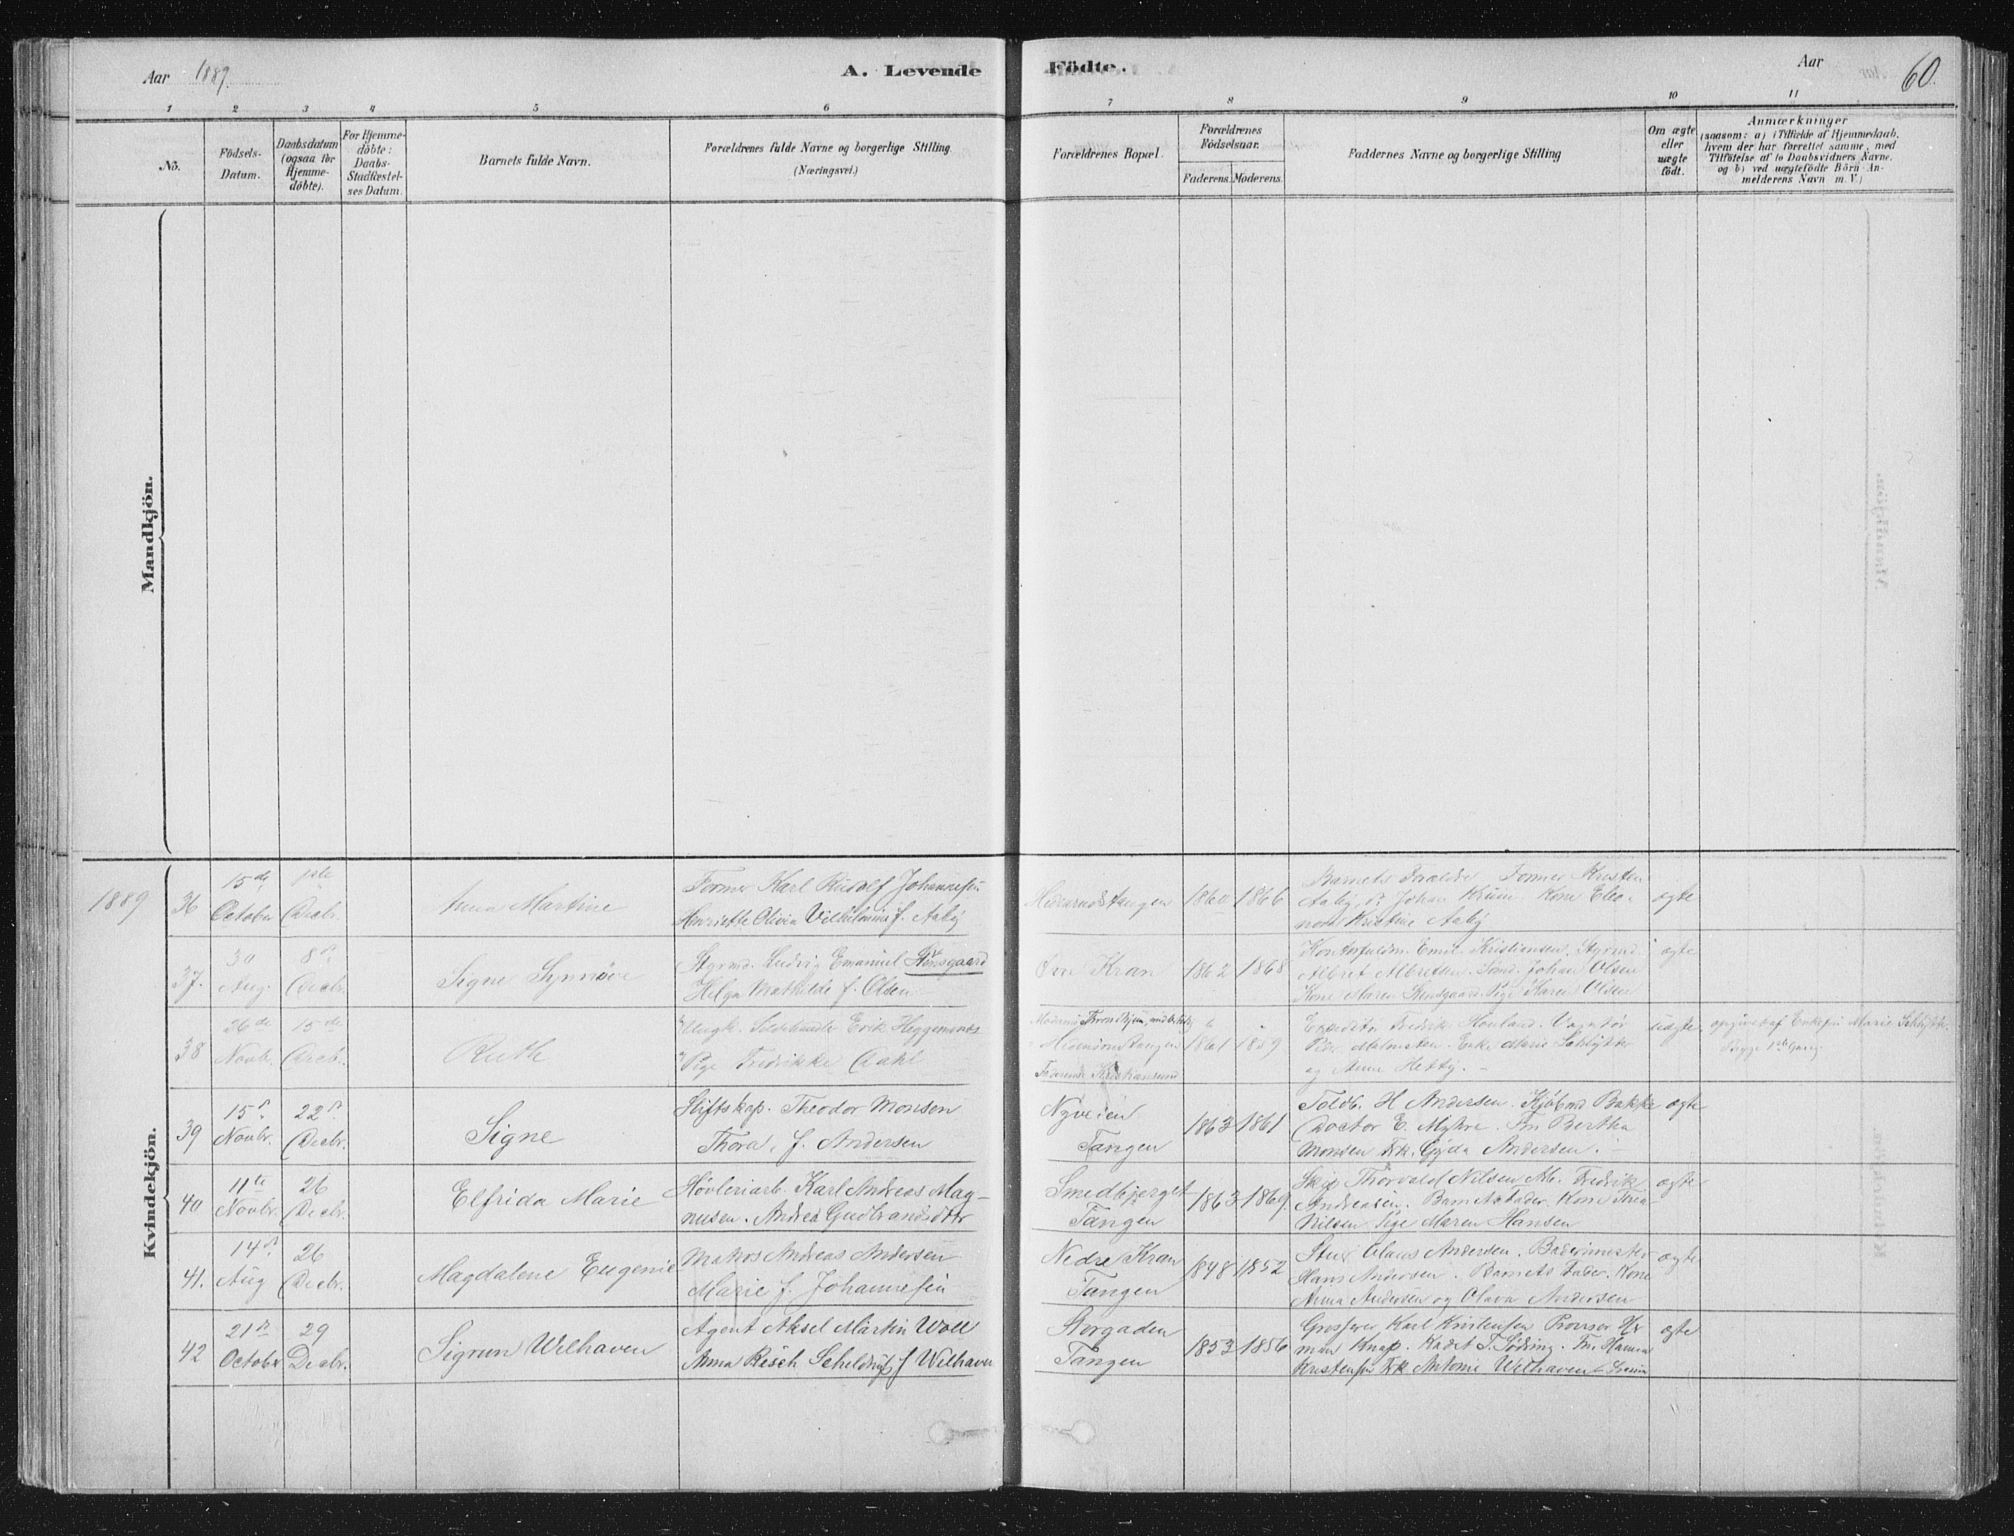 Aar 1889.
A. Levende Födte.
Aar
60.
1 2 3 4 5 6 7 8 9 10 11
No.
Födsels-Datum.
Daabsdatum (ogsaa for Hjemme-döbte).
For Hjemme-döbte: Daabs-Stadfæstel-ses Datum.
Barnets fulde Navn.
Forældrenes fulde Navne og borgerlige Stilling
(Næringsvei.)
Forældrenes Bopæl.
Forældrenes Födselsaar.
Faderens. Moderens.
Faddernes Navne og borgerlige Stilling
Om ægte eller uægte födt.
Anmærkninger
(saasom: a) i Tilfælde af Hjemmedaab,
hvem der har forrettet samme, med
Tilföielse af to Daabsvidners Navne,
og b) ved uægtefödte Börn An-
melderens Navn m. V.)
Mandkjön.
Kvindekjön.
1889
36 15de October Decbr. Anna Martine
Former Karl Rudolf Johannesen
Henriette Olivia Vilhelmine f. Aaby
1860 1866
Barnets Forældre Former Kristen
Aaby, Johan Krum Kone Eleo-
nora Kristine Aaby
ægte
37. 30 Aug. 8de Decbr. Signe Synnöve
Styrmd. Ludvig Emanuel Stensgaard
Helga Mathilde f. Olsen
Övre Kran
1862 1868
Kontorfuldm. Emil Kristiansen, Styrmd.
Albret Albretsen. Sömd. Johan Olsen
Kone Maren Stensgaard. Pige Karen Olsen
ægte
38 26de Novbr. 15de Decbr. Ruth
Ungk. Erik Heggemsnes
Pige Fredrikke Dahl
Moderens Trondhjem,
Tangen
Faderens Kristiansund
1861 1859
Fredrik Houland.
Peer Malmsten. Enke Marie
og Anna Hetty.
uægte
opgivet af Enkefru Marie
39 15de Novbr. 22de Decbr. Signe
Skibskap. Theodor Monsen
Thora, f. Andersen
Nyveien
Tangen
1863 1861
Toldb. H Andersen. Kjöbmd Bakke
Doctor E. Myhre. Fru Bertha
Monsen Frk. Gyda Andersen.
ægte
40 11te Novbr. 26 Decbr. Elfrida Marie
Hövleriarb. Karl Andreas Mag-
nusen. Andrea Gudbrandsdtr
Smedbjerget
Tangen
1863 1869.
Skip Thorvald Nilsen Arb. Fredrik
Andreasen. Barnets Fader. Kone Thea
Nilsen Pige Maren Hansen
ægte
41. 14de Aug 26 Decbr. Magdalene Eugenie
Matros Andreas Andersen
Marie f. Johannesen
Nedre Kran
Tangen
1848 1852
Stuer Claus Andersen. Bademester
Hans Andersen. Barnets Fader. Kone
Anna Andersen og Olava Andersen
ægte
42 21de October 29 Decbr. Sigrun Welhaven
Agent Aksel Martin Woll
Anna Resch Scheldrup f Welhaven
Storgaden
Tangen
1853 1856
Grosserer Karl Kristensen Provisor Her
man Knap. Kadet T. Söding. Fru Hanna
Kristensen Frk Antonie Welhaven
ægte